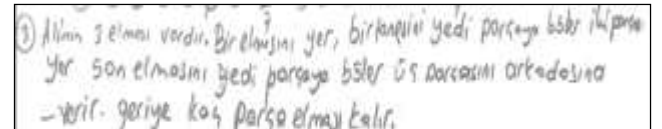 ③ Ali'nin 3 elması vardır. Bir elmasını yer, bir tanesini yedi parçaya böler iki parça
yer son elmasını yedi parçaya böler üç parçasını arkadaşına
verir. geriye kaç parça elması kalır.